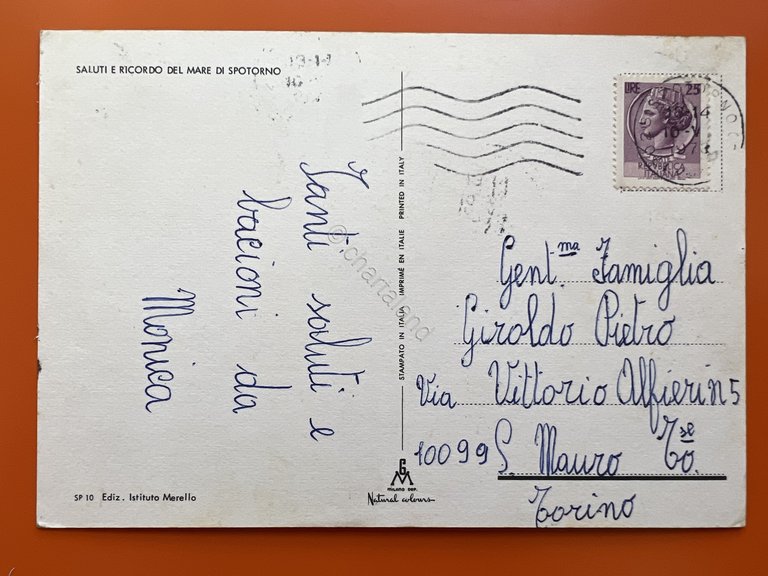 SALUTI E RICORDO DEL MARE DI SPOTORNO
Tanti saluti e
bacioni da
Monica
SP 10 Ediz. Istituto Merello
STAMPATO IN ITALIA IMPRIMÉ EN ITALIE PRINTED IN ITALY
GM
MILANO DEP.
Natural colours
LIRE 25
Gent.ma Famiglia
Giroldo Pietro
Via Vittorio Alfieri n 5
10099 S. Mauro To.se
Torino
© chartaland